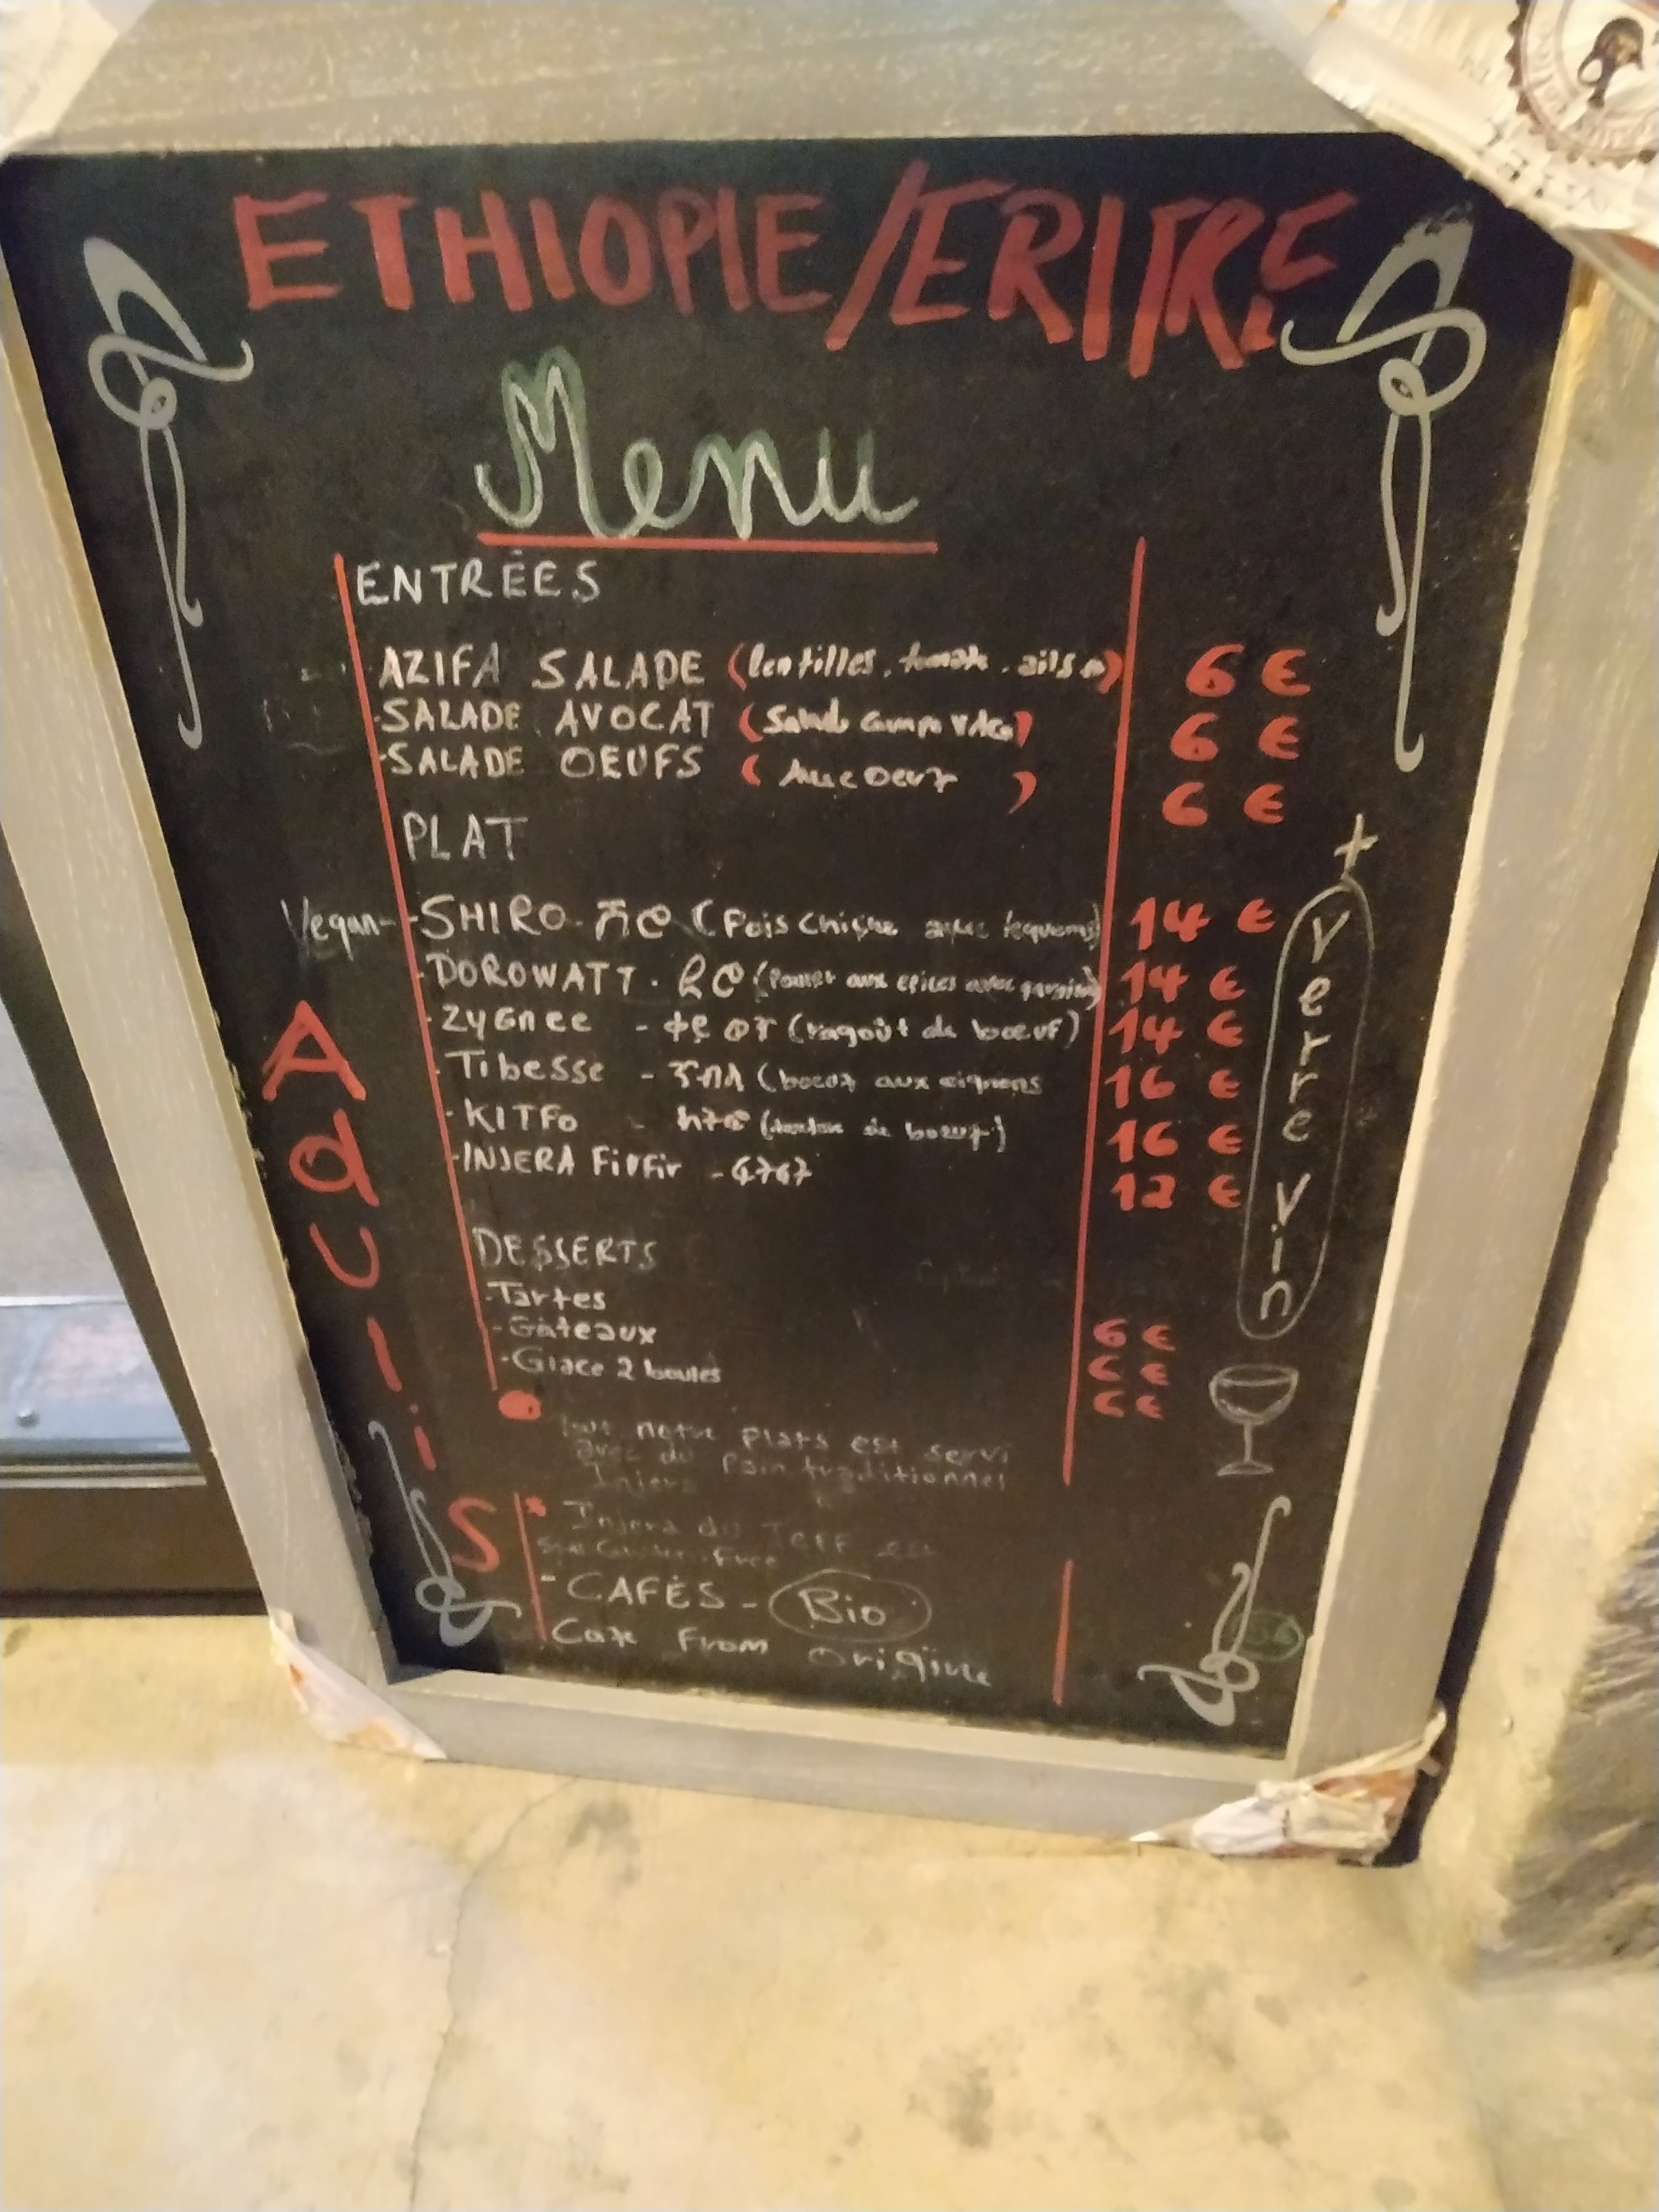 ETHIOPIE/ERITRE
Menu
ENTRÉES
AZIFA SALADE (lentilles, tomate, ails) 6 €
-SALADE AVOCAT 6 €
-SALADE OEUFS (Avec oeuf) 6 €
PLAT
Vegan- -SHIRO-ሽሮ (Pois chiche avec legumes) 14 €
-DOROWATT. ዶሮ (Poulet aux epices avec) 14 €
-ZYGNEE - (ragoût de boeuf) 14 €
-Tibesse - ጥብስ (boeuf aux oignons 16 €
-KITFO - ክትፎ (tartare de boeuf) 16 €
-INJERA FirFir - ፍትፍት 12 €
DESSERTS
-Tartes 6 €
-Gâteaux 6 €
-Glace 2 boules 6 €
Tout notre plats est servi
avec du Pain traditionnel
Injera
* Injera du Teff est
Free
- CAFÉS - Bio
From Origine
AQUI
S
+ Verre Vin